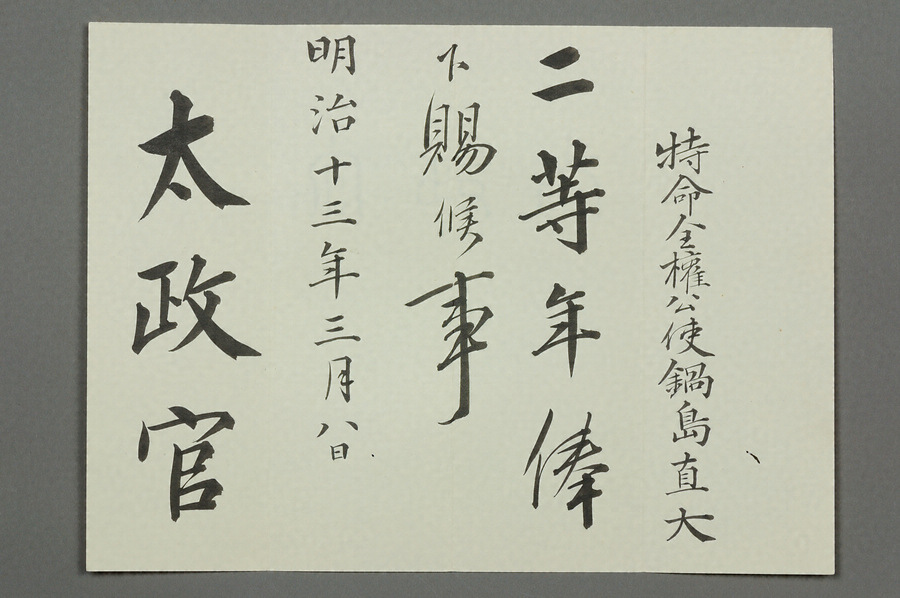 特命全權公使鍋島直大
二等年俸
下賜候事
明治十三年三月八日
太政官